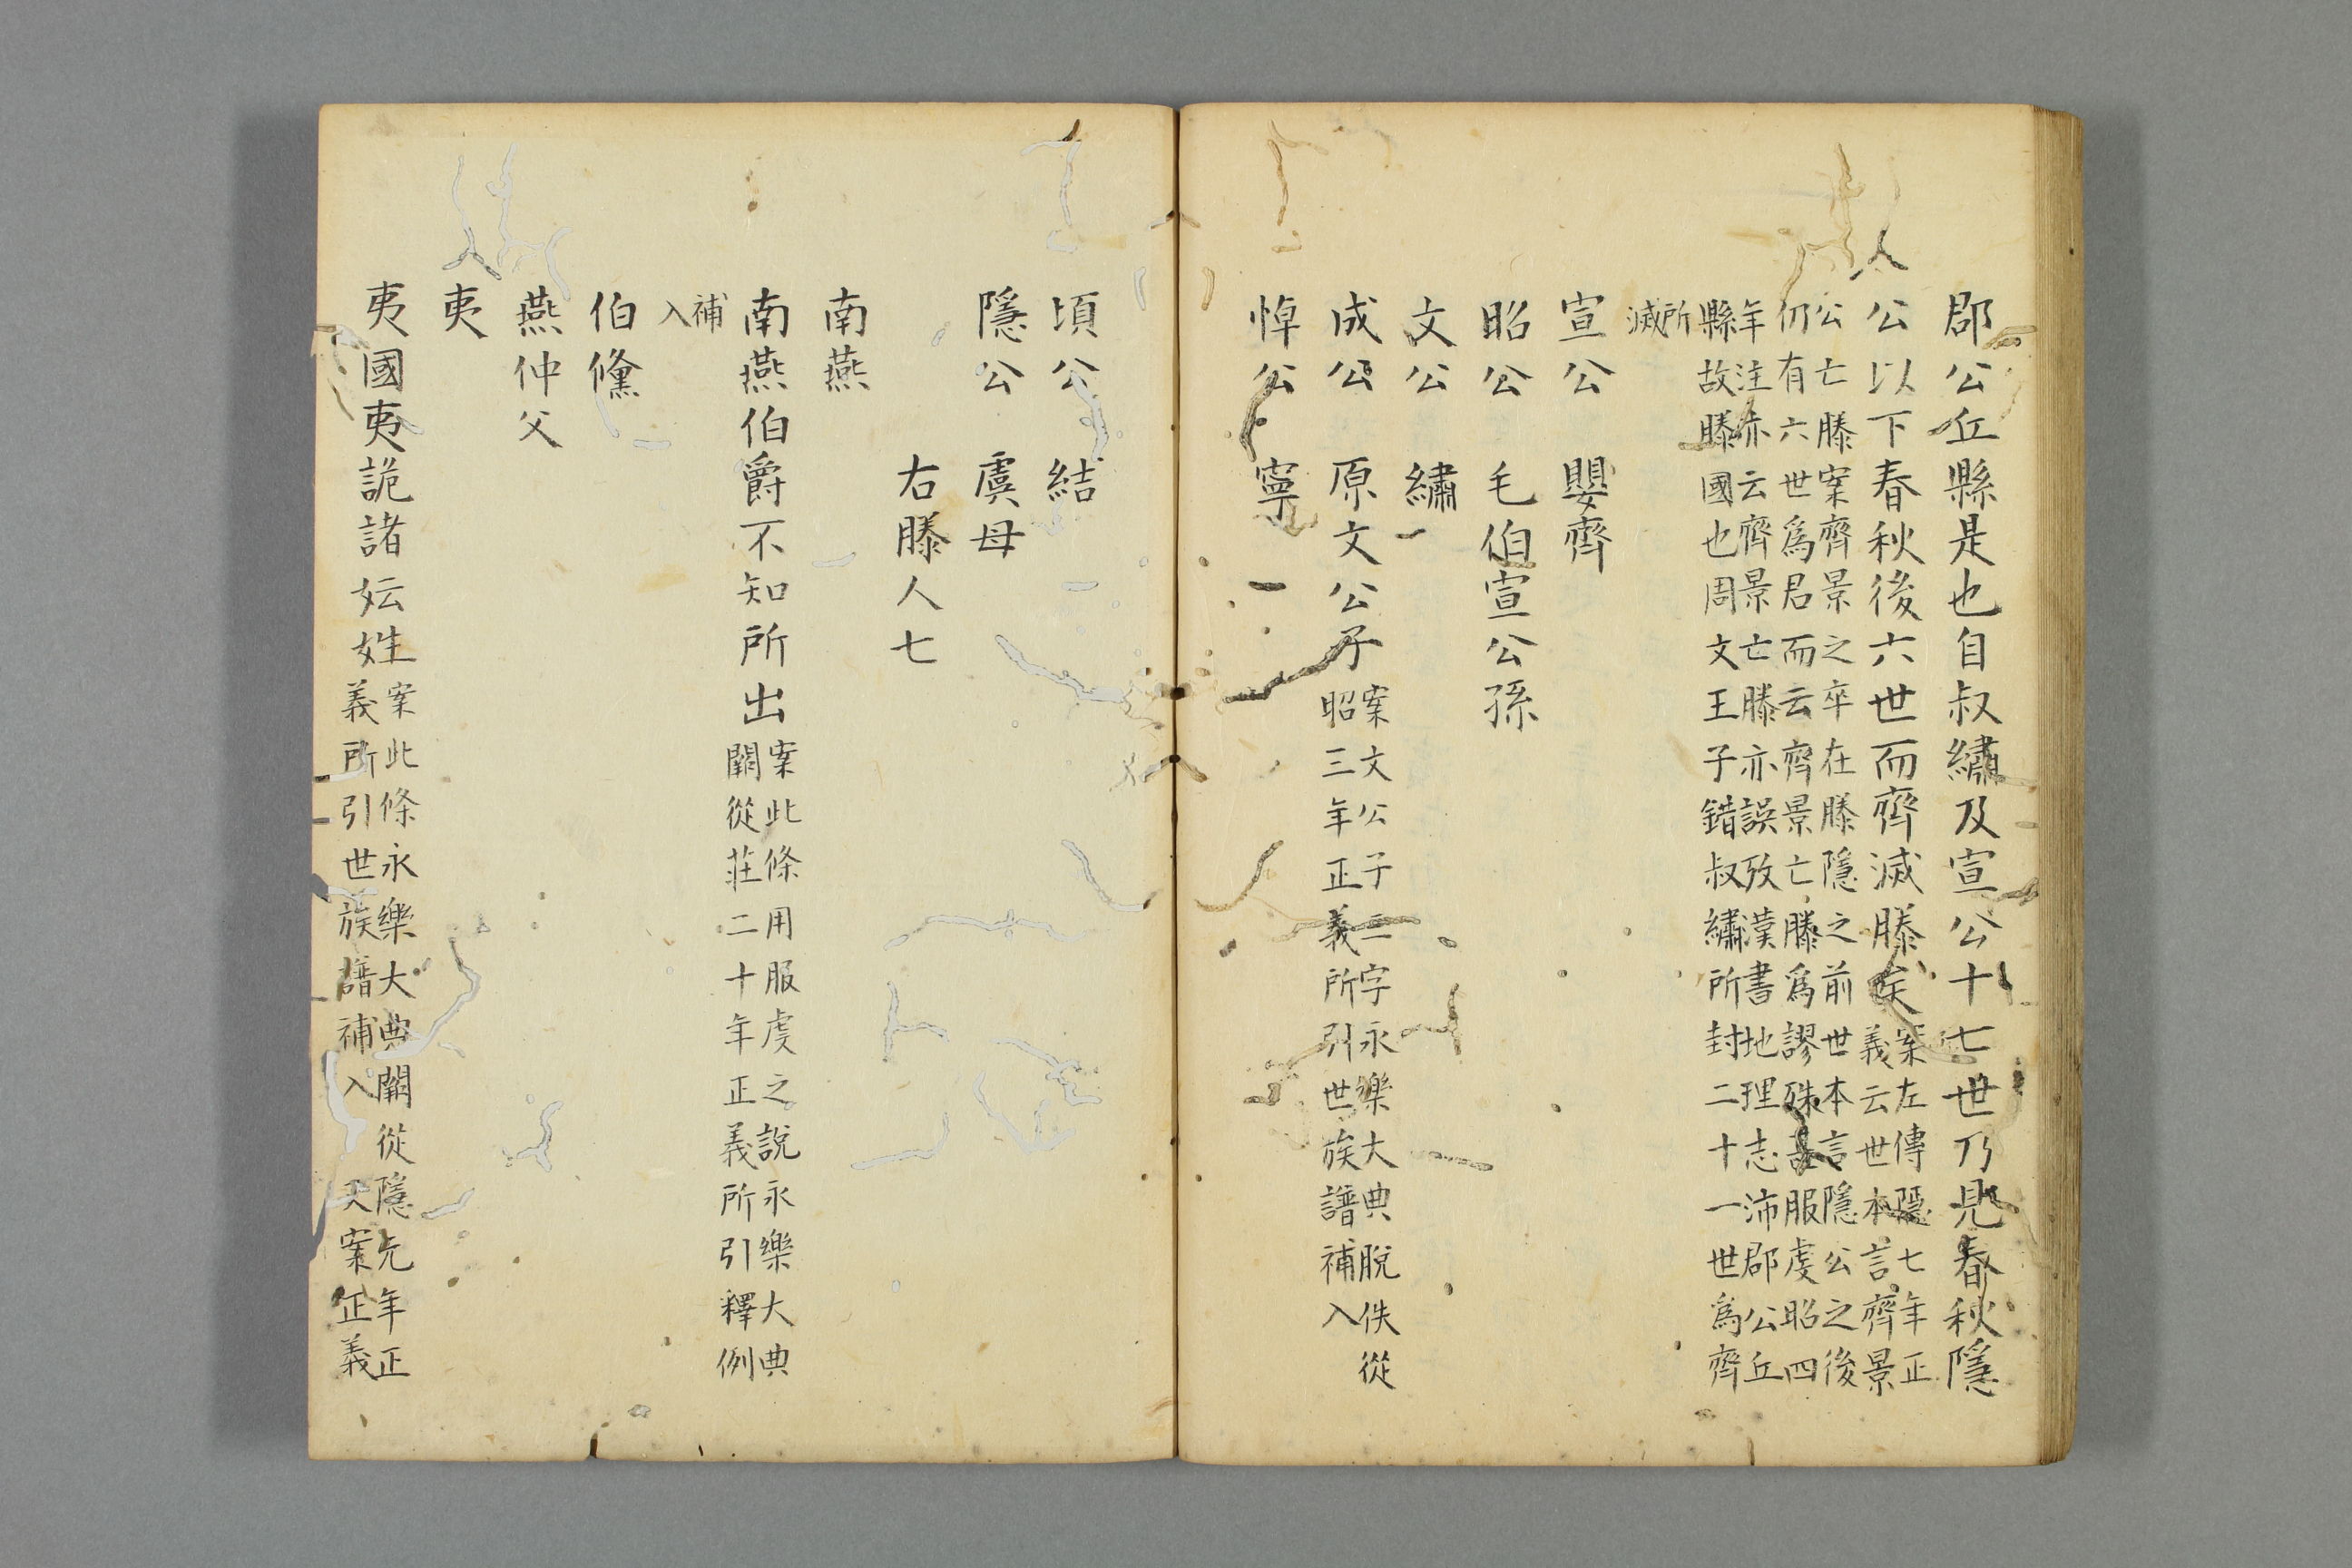 郡公丘縣是也自叔繡及宣公十七世乃見春秋隱
公以下春秋後六世而齊滅滕矣案左傳隱七年正
義云世本言齊景
公亡滕案齊景之卒在滕隱之前世本言隱公之後
仍有六世爲君而云齊景亡滕爲謬殊甚服虔昭四
年注亦云齊景亡滕亦誤攷漢書地理志沛郡公丘
縣故滕國也周文王子錯叔繡所封二十一世爲齊
所
滅
宣公　嬰齊
昭公　毛伯宣公孫
文公　繡
成公　原文公子案文公子三字永樂大典脫佚從
昭三年正義所引世族譜補入
悼公　寧
頃公　結
隱公　虞母
右滕人七
南燕
南燕伯爵不知所出案此條用服虔之說永樂大典
闕從莊二十年正義所引釋例
補
入
伯儵
燕仲父
夷
夷國夷詭諸妘姓案此條永樂大典闕從隱元年正
義所引世族譜補入又案正義